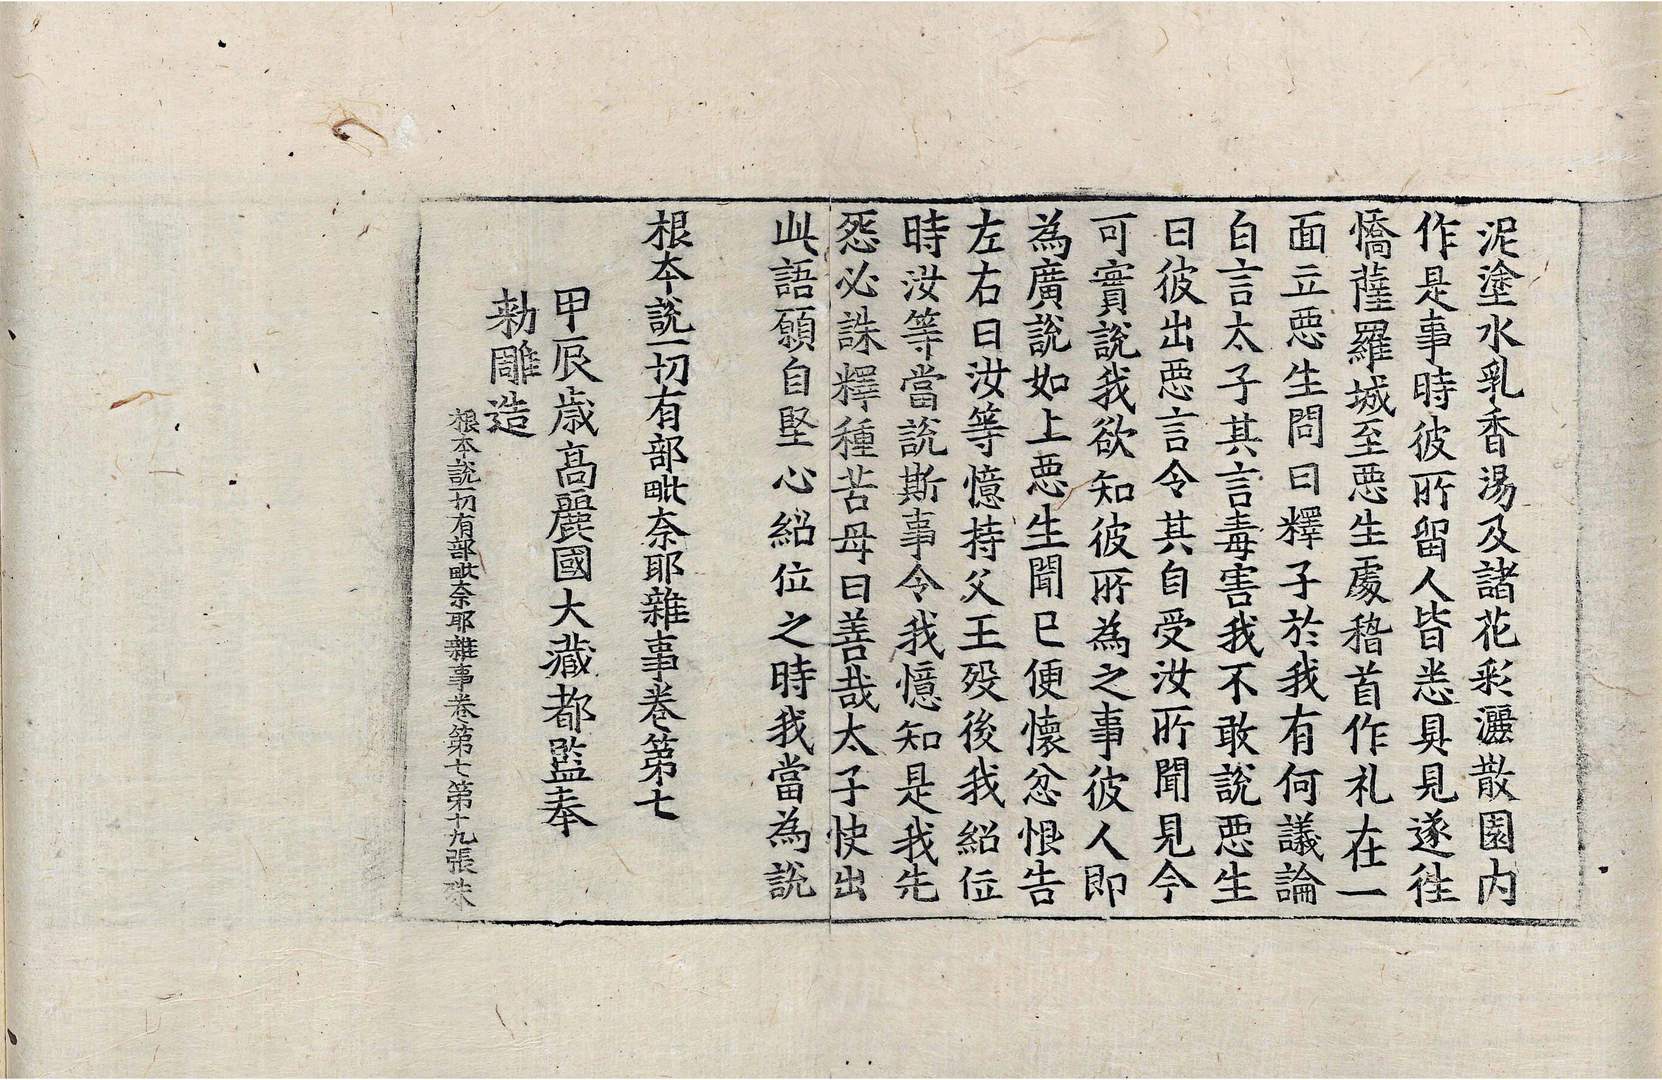 泥塗水乳香湯及諸花彩灑散園內
作是事時彼所留人皆悉具見遂往
憍薩羅城至惡生處稽首作礼在一
面立惡生問曰釋子於我有何議論
白言太子其言毒害我不敢說惡生
曰彼出惡言令其自受汝所聞見今
可實說我欲知彼所為之事彼人即
為廣說如上惡生聞已便懷忿恨告
左右曰汝等憶持父王歿後我紹位
時汝等當說斯事令我憶知是我先
怨必誅釋種苦母曰善哉太子快出
此語願自堅心紹位之時我當為說
根本說一切有部毗奈耶雜事卷第七
甲辰歲高麗國大藏都監奉
勑雕造
根本說一切有部毗奈耶雜事卷第七第十九張